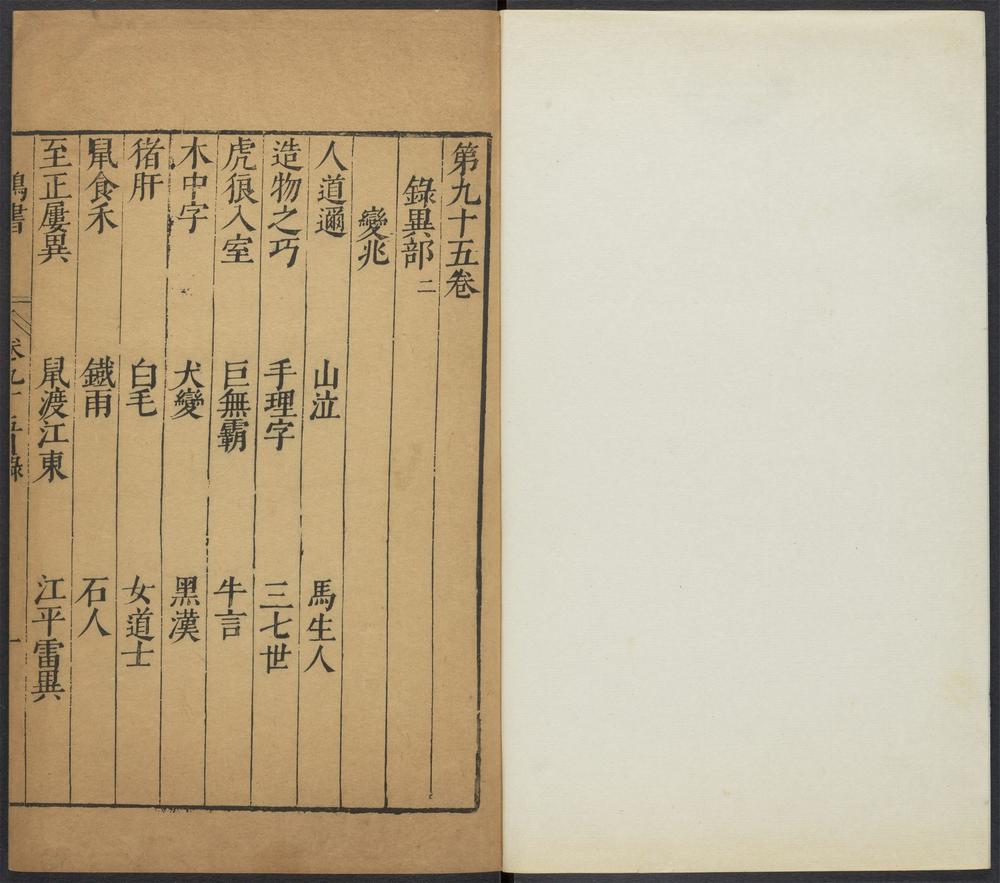 第九十五卷
錄異部二
變兆
人道邇 山泣 馬生人
造物之巧 手理字 三七世
虎狼入室 巨無霸 牛言
木中字 犬變 黑漢
猪肝 白毛 女道士
鼠食禾 鐵雨 石人
至正屢異 鼠渡江東 江平雷異
鴻書 卷九十五錄 一